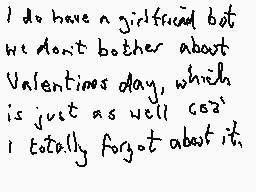 I do have a girlfriend but
we don't bother about
Valentines day, which
is just as well cos
I totally forgot about it.